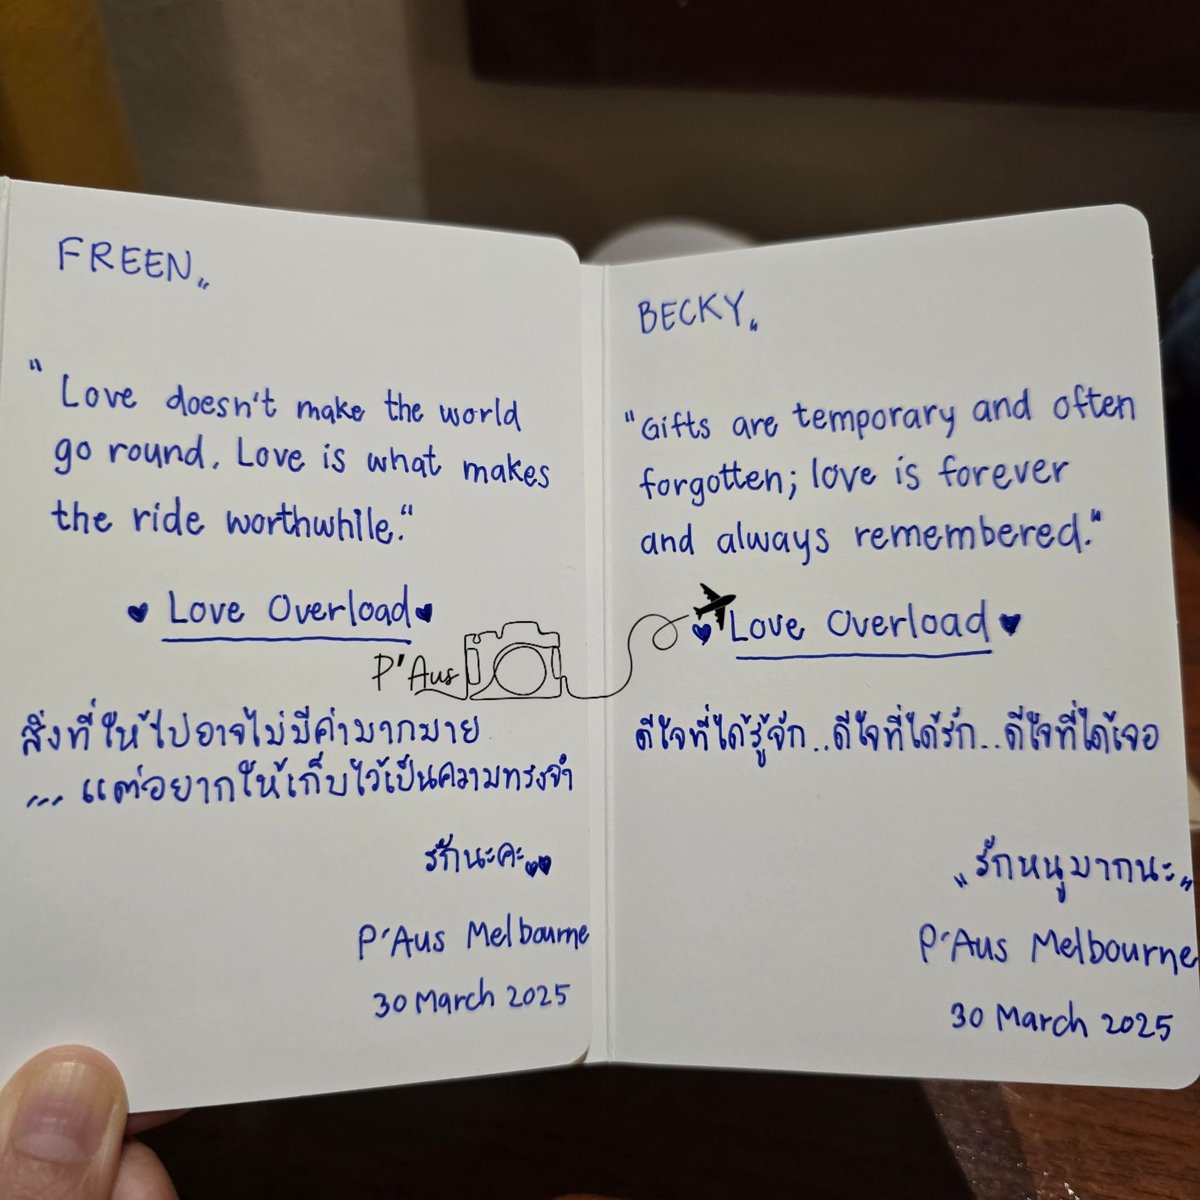 FREEN,,
"Love doesn't make the world
go round. Love is what makes
the ride worthwhile."
♥ Love Overload ♥
สิ่งที่ให้ไปอาจไม่มีค่ามากมาย
... แต่อยากให้เก็บไว้เป็นความทรงจำ
รักนะคะ ♥♥
P'Aus Melbourne
30 March 2025
P'Aus
BECKY,,
"Gifts are temporary and often
forgotten; love is forever
and always remembered."
♥ Love Overload ♥
ดีใจที่ได้รู้จัก..ดีใจที่ได้รัก..ดีใจที่ได้เจอ
"รักหนูมากนะ"
P'Aus Melbourne
30 March 2025